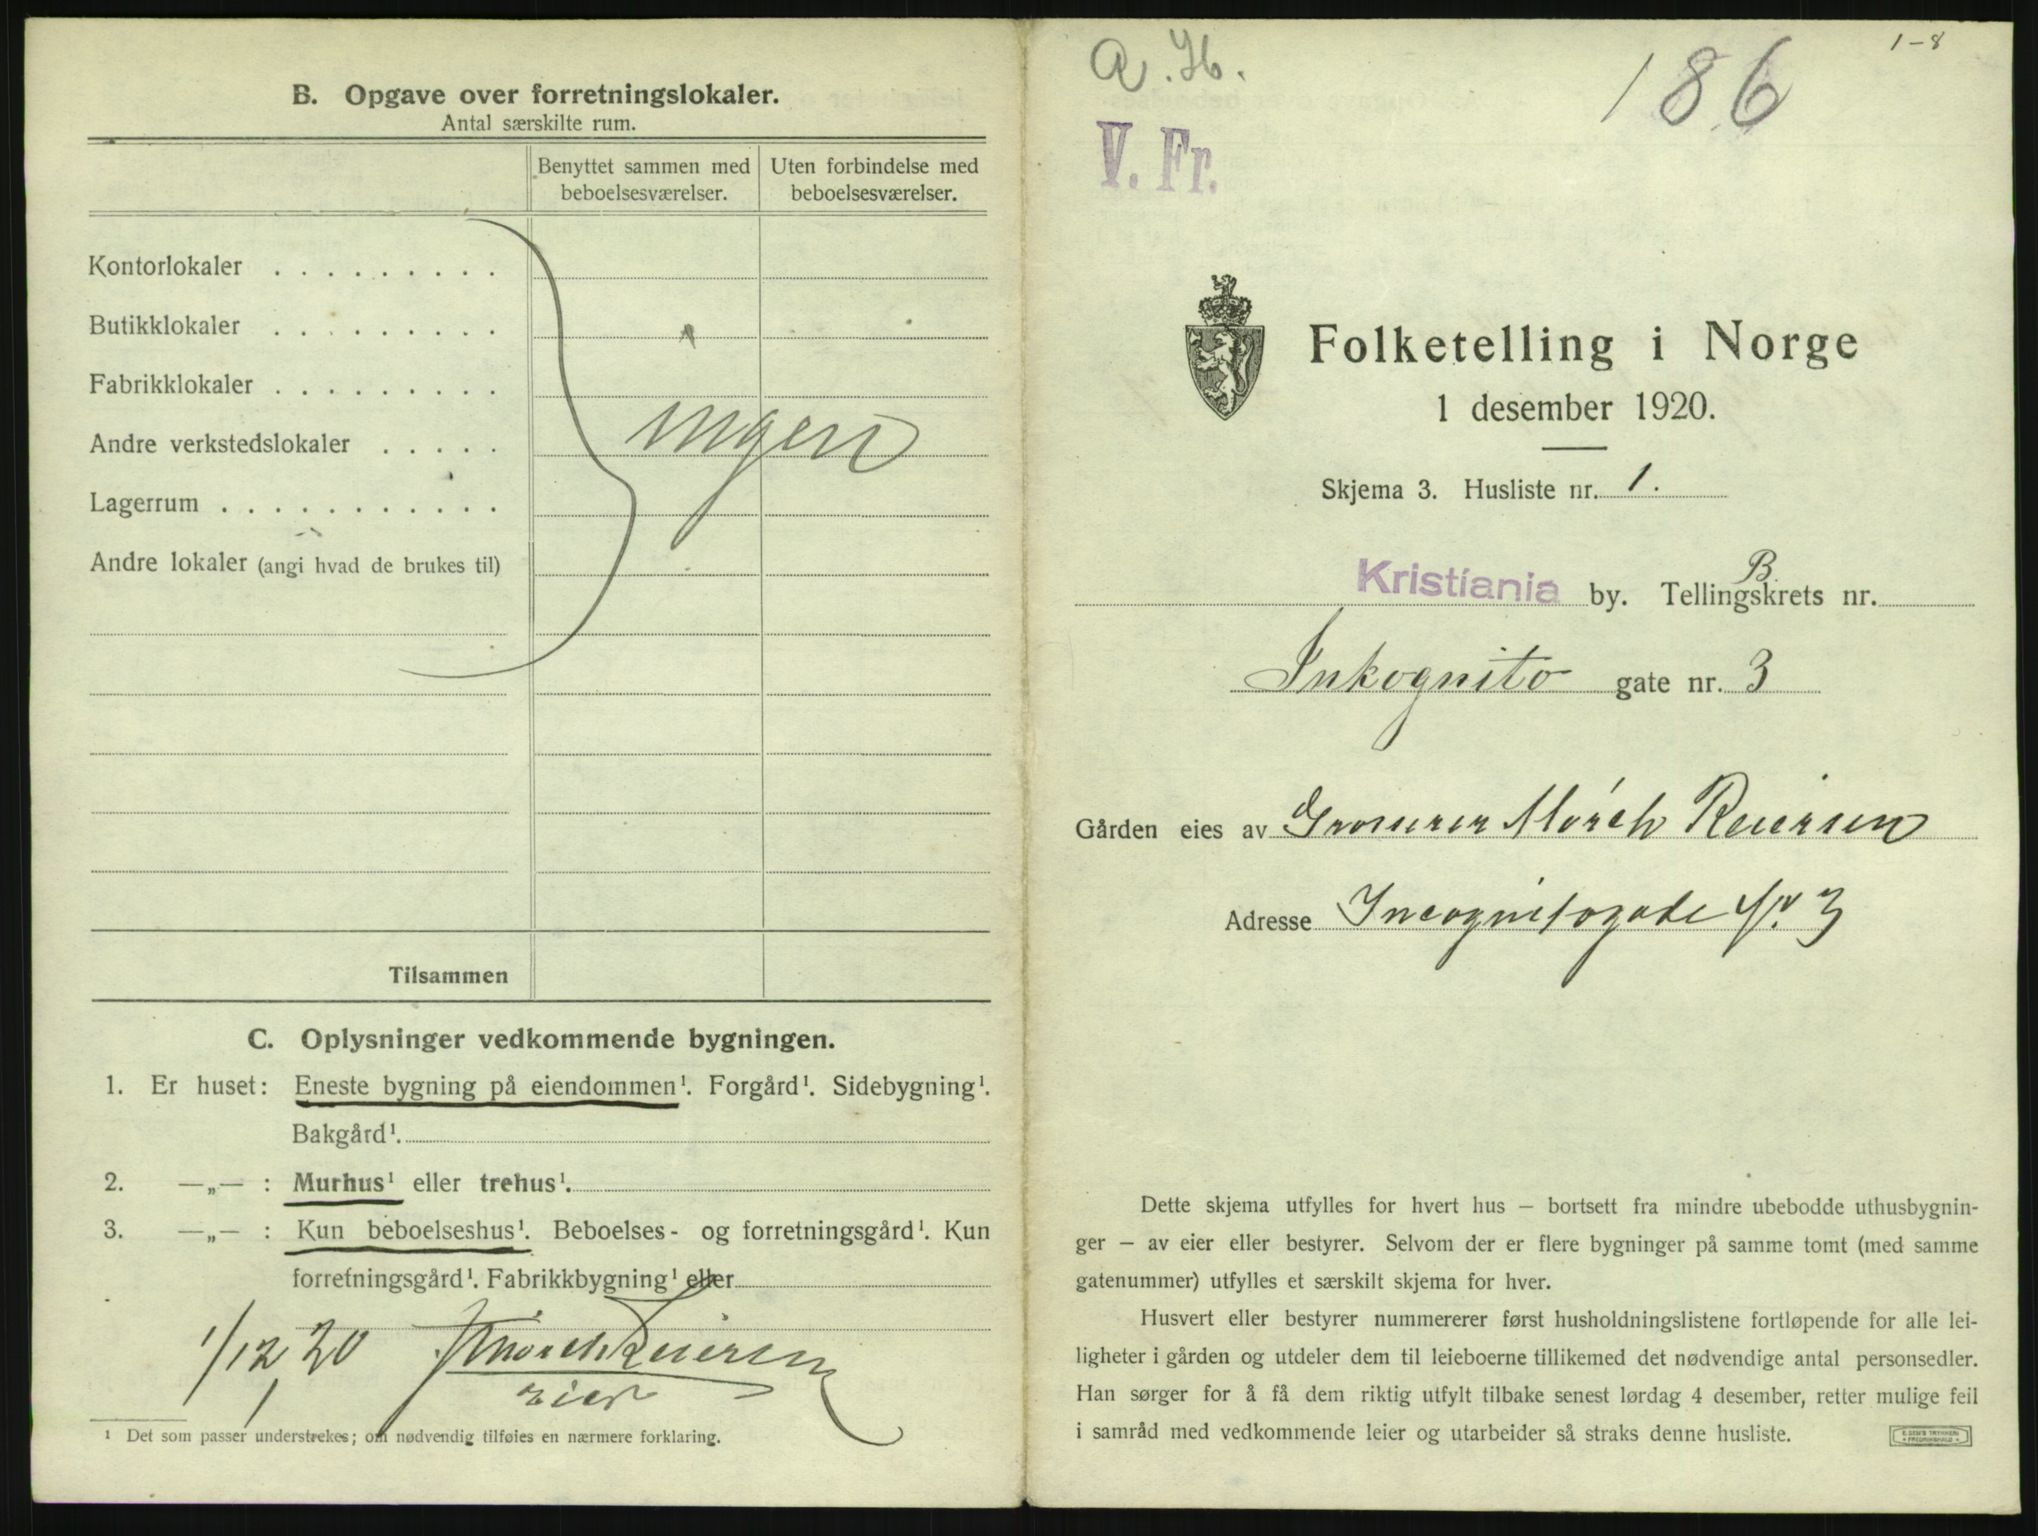 B. Opgave over forretningslokaler.
Antal særskilte rum.
Benyttet sammen med beboelsesværelser.
Uten forbindelse med beboelsesværelser.
Kontorlokaler . . . . . . . . .
Butikklokaler . . . . . . . . .
Fabrikklokaler . . . . . . . . .
Andre verkstedslokaler . . . . .
Ingen
Lagerrum . . . . . . . . . . .
Andre lokaler (angi hvad de brukes til)
Tilsammen
C. Oplysninger vedkommende bygningen.
1. Er huset: Eneste bygning på eiendommen¹. Forgård¹. Sidebygning¹.
Bakgård¹.
2. —„— : Murhus¹ eller trehus¹.
3. —„— : Kun beboelseshus¹. Beboelses- og forretningsgård¹. Kun
forretningsgård¹. Fabrikkbygning¹ eller
1/12 20 Mørch Reiersen
eier
¹ Det som passer understrekes; om nødvendig tilføies en nærmere forklaring.
1-8
A. H. 186
V. Fr.
Folketelling i Norge
1 desember 1920.
Skjema 3. Husliste nr. 1.
Kristiania by. Tellingskrets nr.
B
Inkognito gate nr. 3
Gården eies av Grosserer Mørch Reiersen
Adresse Incognitogade Nr. 3
Dette skjema utfylles for hvert hus — bortsett fra mindre ubebodde uthusbygnin-
ger — av eier eller bestyrer. Selvom der er flere bygninger på samme tomt (med samme
gatenummer) utfylles et særskilt skjema for hver.
Husvert eller bestyrer nummererer først husholdningslistene fortløpende for alle lei-
ligheter i gården og utdeler dem til leieboerne tillikemed det nødvendige antal personsedler.
Han sørger for å få dem riktig utfylt tilbake senest lørdag 4 desember, retter mulige feil
i samråd med vedkommende leier og utarbeider så straks denne husliste.